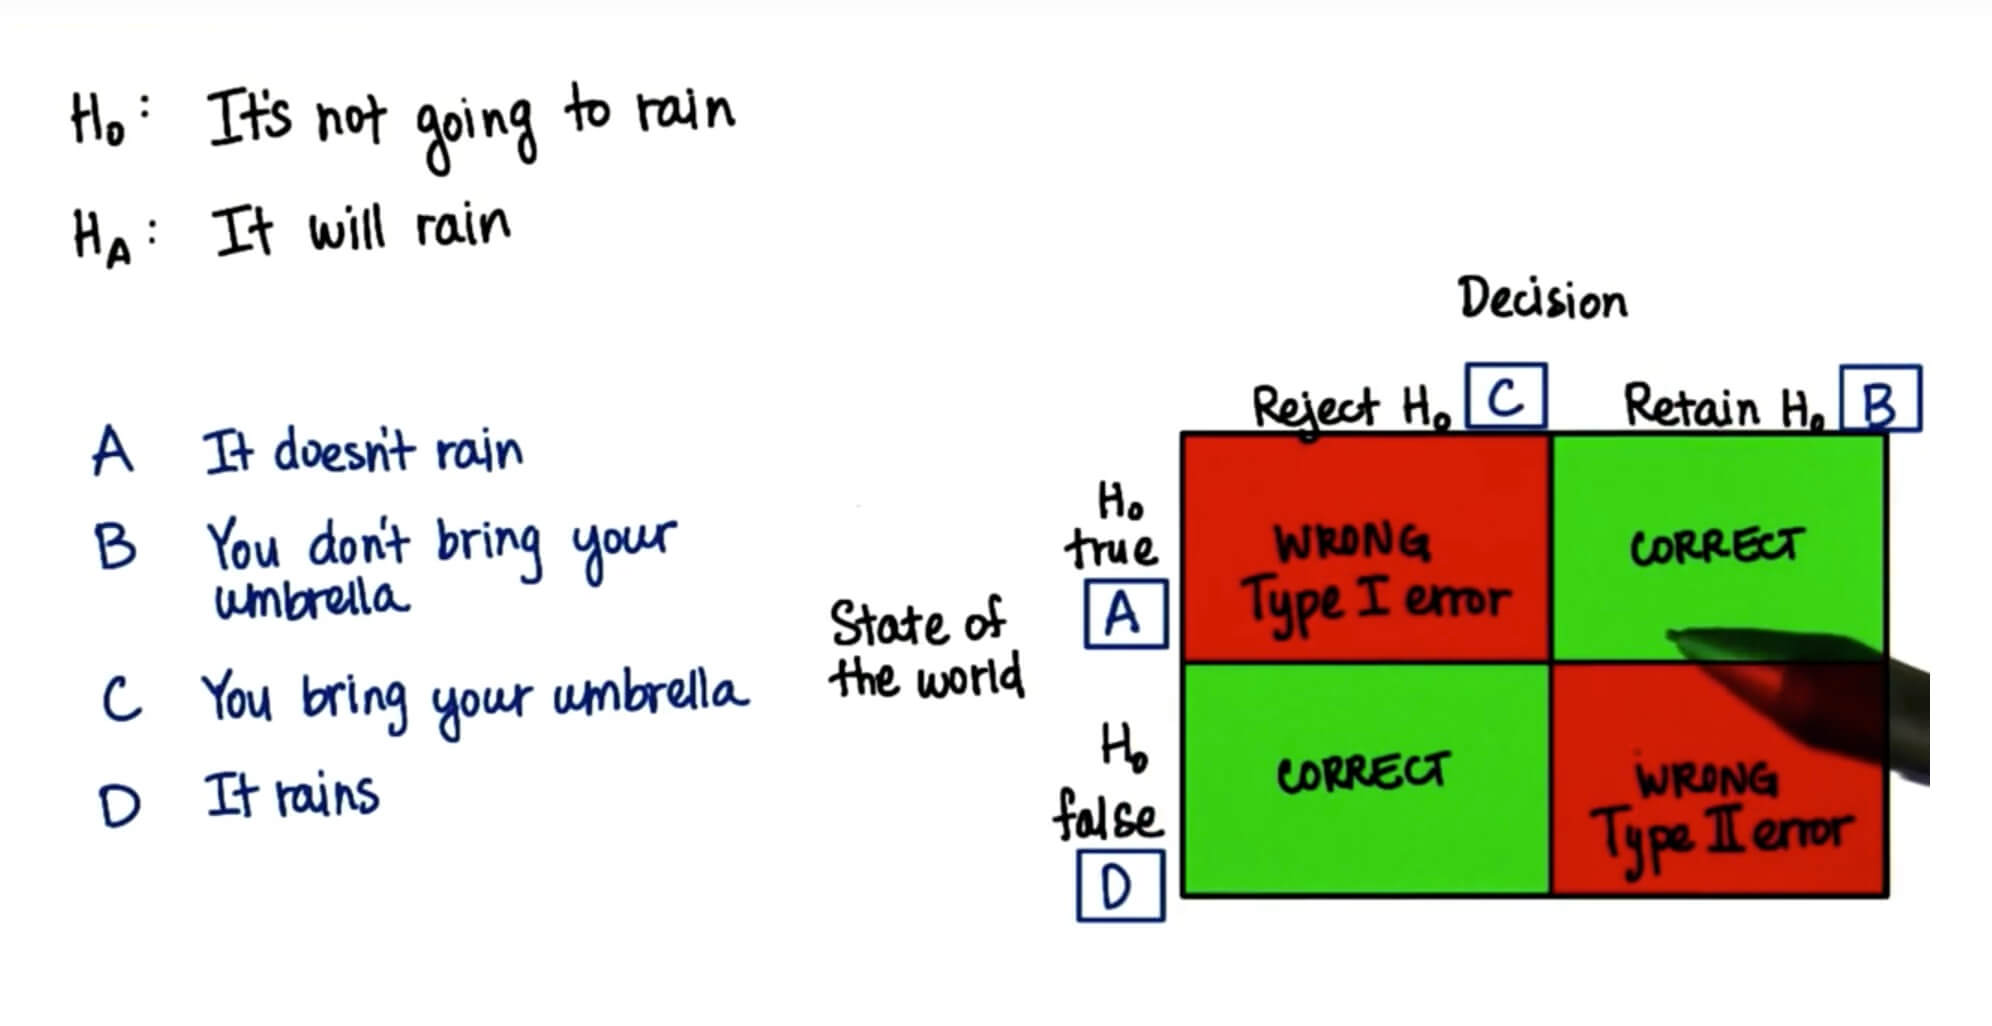 H₀: It's not going to rain
H_A: It will rain
A It doesn't rain
B You don't bring your
umbrella
C You bring your umbrella
D It rains
Decision
Reject H₀ C Retain H₀ B
State of
the world
H₀
true
A
WRONG
Type I error
CORRECT
H₀
false
D
CORRECT
WRONG
Type II error